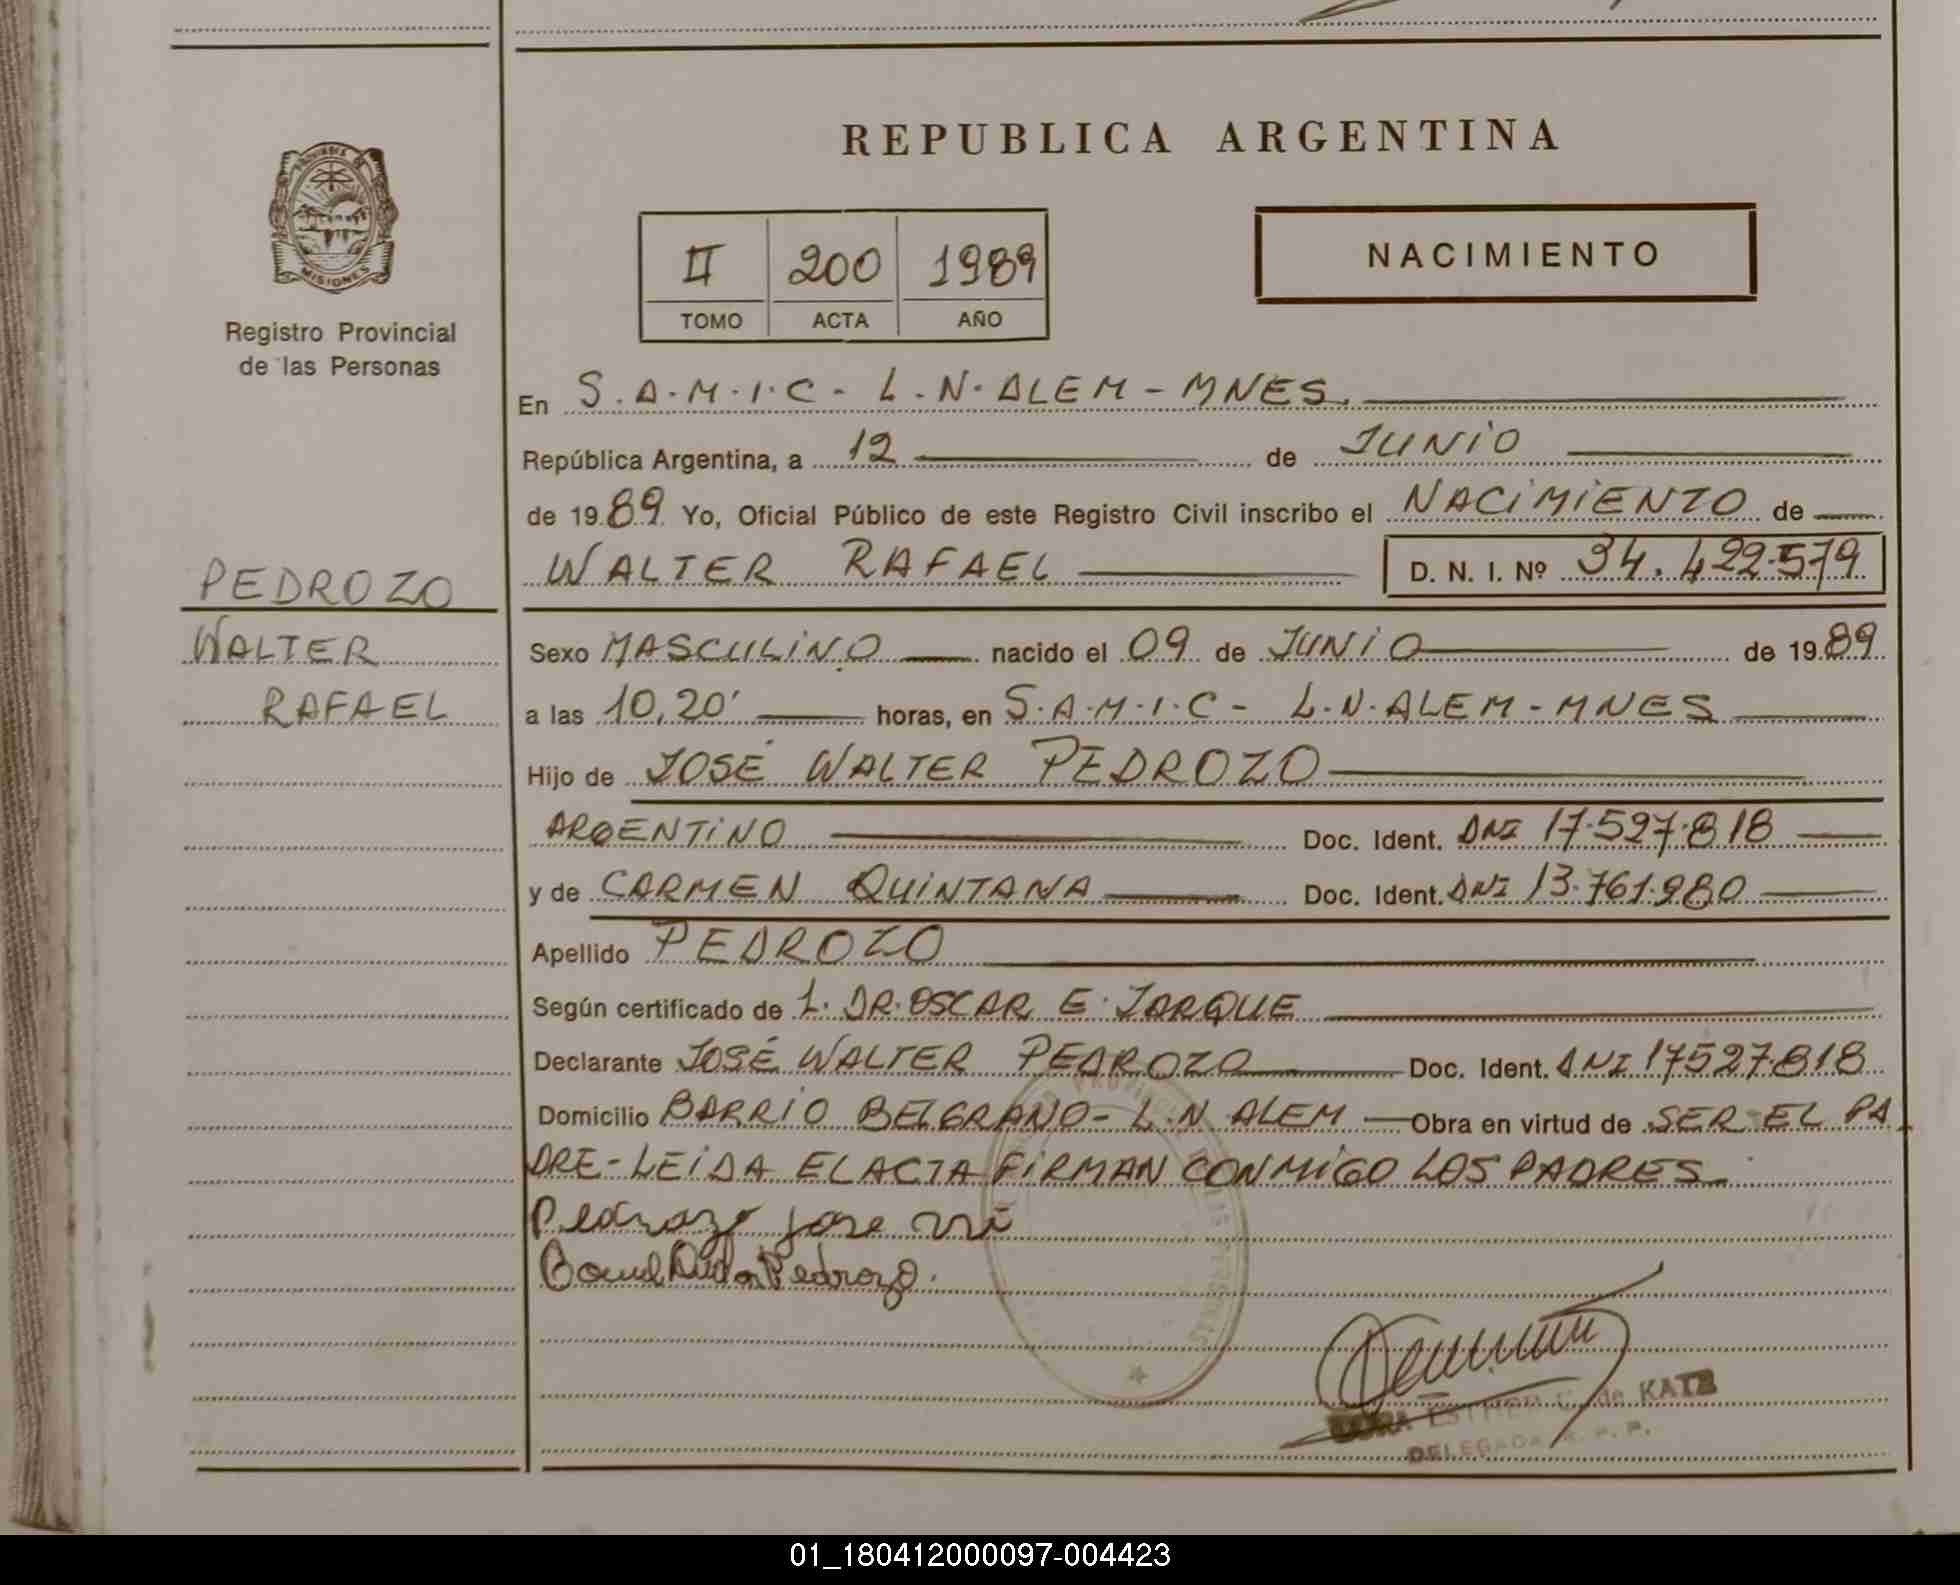 REPUBLICA ARGENTINA
PROVINCIA DE
MISIONES
Registro Provincial
de las Personas
II 200 1989
TOMO ACTA AÑO
NACIMIENTO
En S.A.M.I.C - L.N.ALEM - MNES.
República Argentina, a 12 de JUNIO
de 1989 Yo, Oficial Público de este Registro Civil inscribo el NACIMIENTO de
WALTER RAFAEL D. N. I. Nº 34.422.579
PEDROZO
WALTER
RAFAEL
Sexo MASCULINO nacido el 09 de JUNIO de 1989
a las 10,20' horas, en S.A.M.I.C - L.N.ALEM - MNES
Hijo de JOSÉ WALTER PEDROZO
ARGENTINO Doc. Ident. DNI 17.527.818
y de CARMEN QUINTANA Doc. Ident. DNI 13.761.980
Apellido PEDROZO
Según certificado de 1. DR. OSCAR E. JARQUE
Declarante JOSÉ WALTER PEDROZO Doc. Ident. DNI 17527.818
Domicilio BARRIO BELGRANO - L.N. ALEM Obra en virtud de SER EL PA
DRE - LEIDA EL ACTA FIRMAN CONMIGO LOS PADRES
Pedrozo Jose
Pedrozo.
ESTHER de KATZ
DELEGADA R. P. P.
01_180412000097-004423